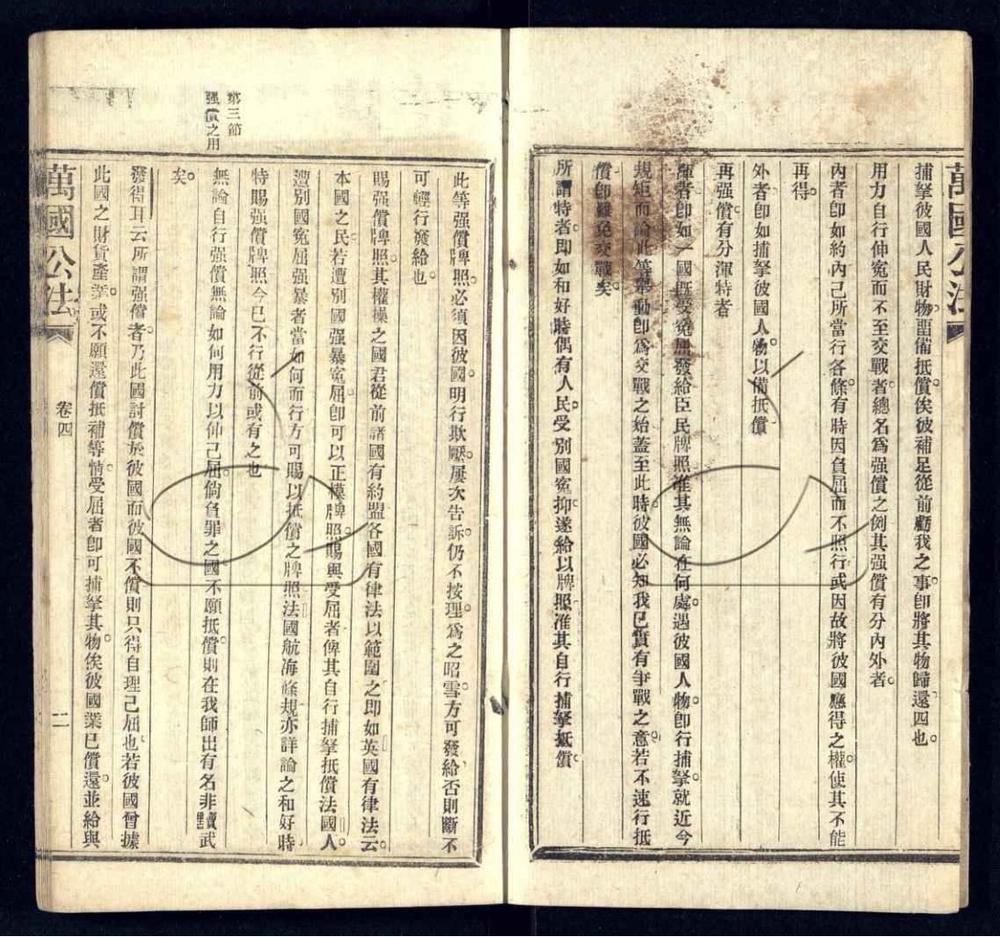 萬國公法
捕拏彼國人民財物畱備抵償俟彼補足從前虧我之事卽將其物歸還四也
用力自行伸寃而不至交戰者總名爲强償之例其强償有分內外者
內者卽如約內己所當行各條有時因負屈而不照行或因故將彼國應得之權使其不能
再得
外者卽如捕拏彼國人物以備抵償
再强償有分渾特者
渾者卽如一國旣受寃屈發給臣民牌照准其無論在何處遇彼國人物卽行捕拏就近今
規矩而論此等舉動卽爲交戰之始蓋至此時彼國必知我已實有爭戰之意若不速行抵
償卽難免交戰矣
所謂特者卽如和好時偶有人民受別國寃抑遂給以牌照准其自行捕拏抵償
此等强償牌照必須因彼國明行欺壓屢次告訴仍不按理爲之昭雪方可發給否則斷不
可輕行發給也
賜强償牌照其權操之國君從前諸國有約盟各國有律法以範圍之卽如英國有律法云
本國之民若遭別國强暴寃屈卽可以正樣牌照賜與受屈者俾其自行捕拏抵償法國人
遭別國寃屈强暴者當如何而行方可賜以抵償之牌照法國航海條規亦詳論之和好時
特賜强償牌照今已不行從前或有之也
第三節
强償之用
無論自行强償無論如何用力以伸己屈倘負罪之國不願抵償則在我師出有名非黷武
矣
發得耳云所謂强償者乃此國討償於彼國而彼國不償則只得自理己屈也若彼國曾據
此國之財貨產業或不願還償抵補等情受屈者卽可捕拏其物俟彼國業已償還並給與
萬國公法
卷四
二